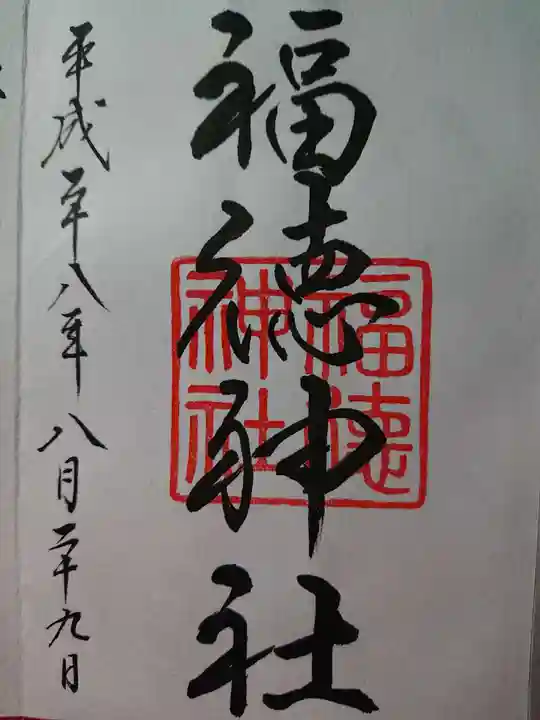 福徳神社
福徳
神社
平成二十八年八月二十九日